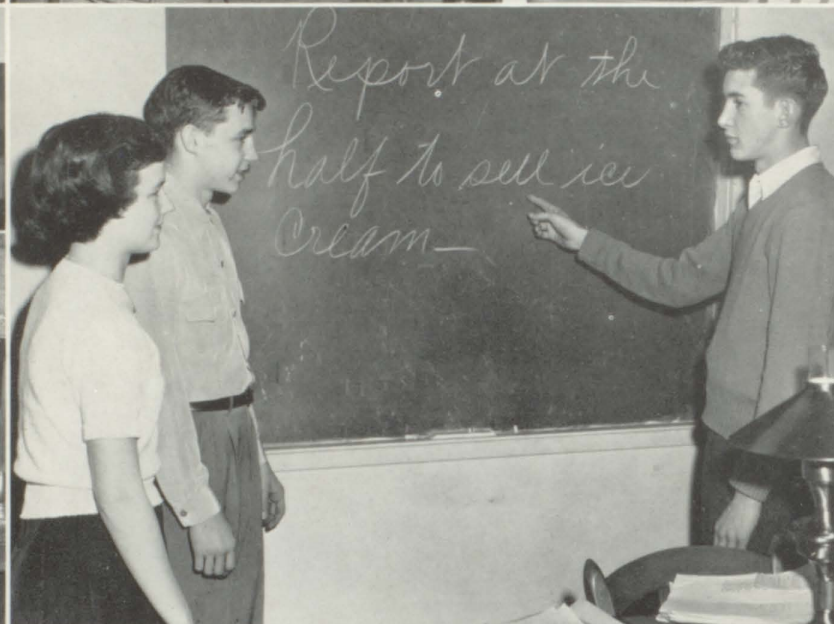 Report at the
half to sell ice
Cream—